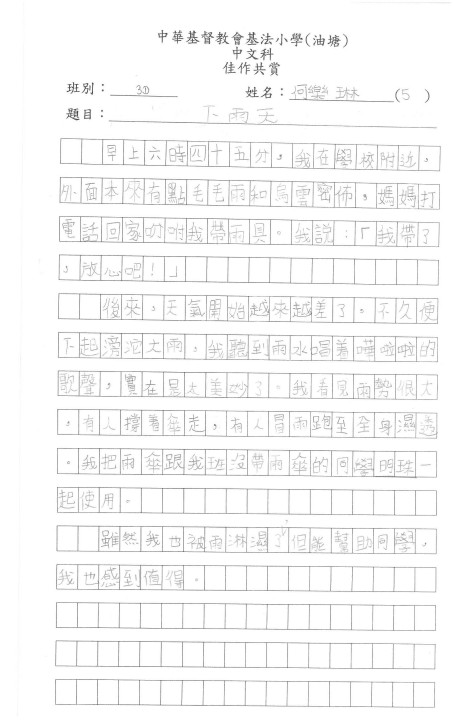 中華基督教會基法小學(油塘)
中文科
佳作共賞
班別： 3D 姓名：何樂琳 (5)
題目： 下雨天
早上六時四十五分，我在學校附近，
外面本來有點毛毛雨和烏雲密佈，媽媽打
電話回家吩咐我帶雨具。我說：「我帶了
，放心吧！」
後來，天氣開始越來越差了，不久便
下起滂沱大雨，我聽到雨水唱着嘩啦啦的
歌聲，實在是太美妙了。我看見雨勢很大
，有人撐着傘走，有人冒雨跑至全身濕透
。我把雨傘跟我班沒帶雨傘的同學明珠一
起使用。
雖然我也被雨淋濕了，但能幫助同學，
我也感到值得。